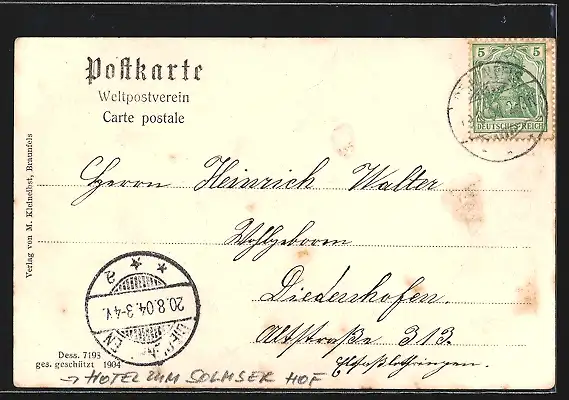 Postkarte
Weltpostverein
Carte postale
5 5
DEUTSCHES REICH
Herrn Heinrich Walter
Wohlgeboren
Diedenhofen.
Altstraße 313.
Elsaßlothringen.
20.8.04.3-4V.
Verlag von M. Kleinelbst, Braunfels
Dess. 7193
ges. geschützt 1904
→ HOTEL ZUM SOLMSER HOF